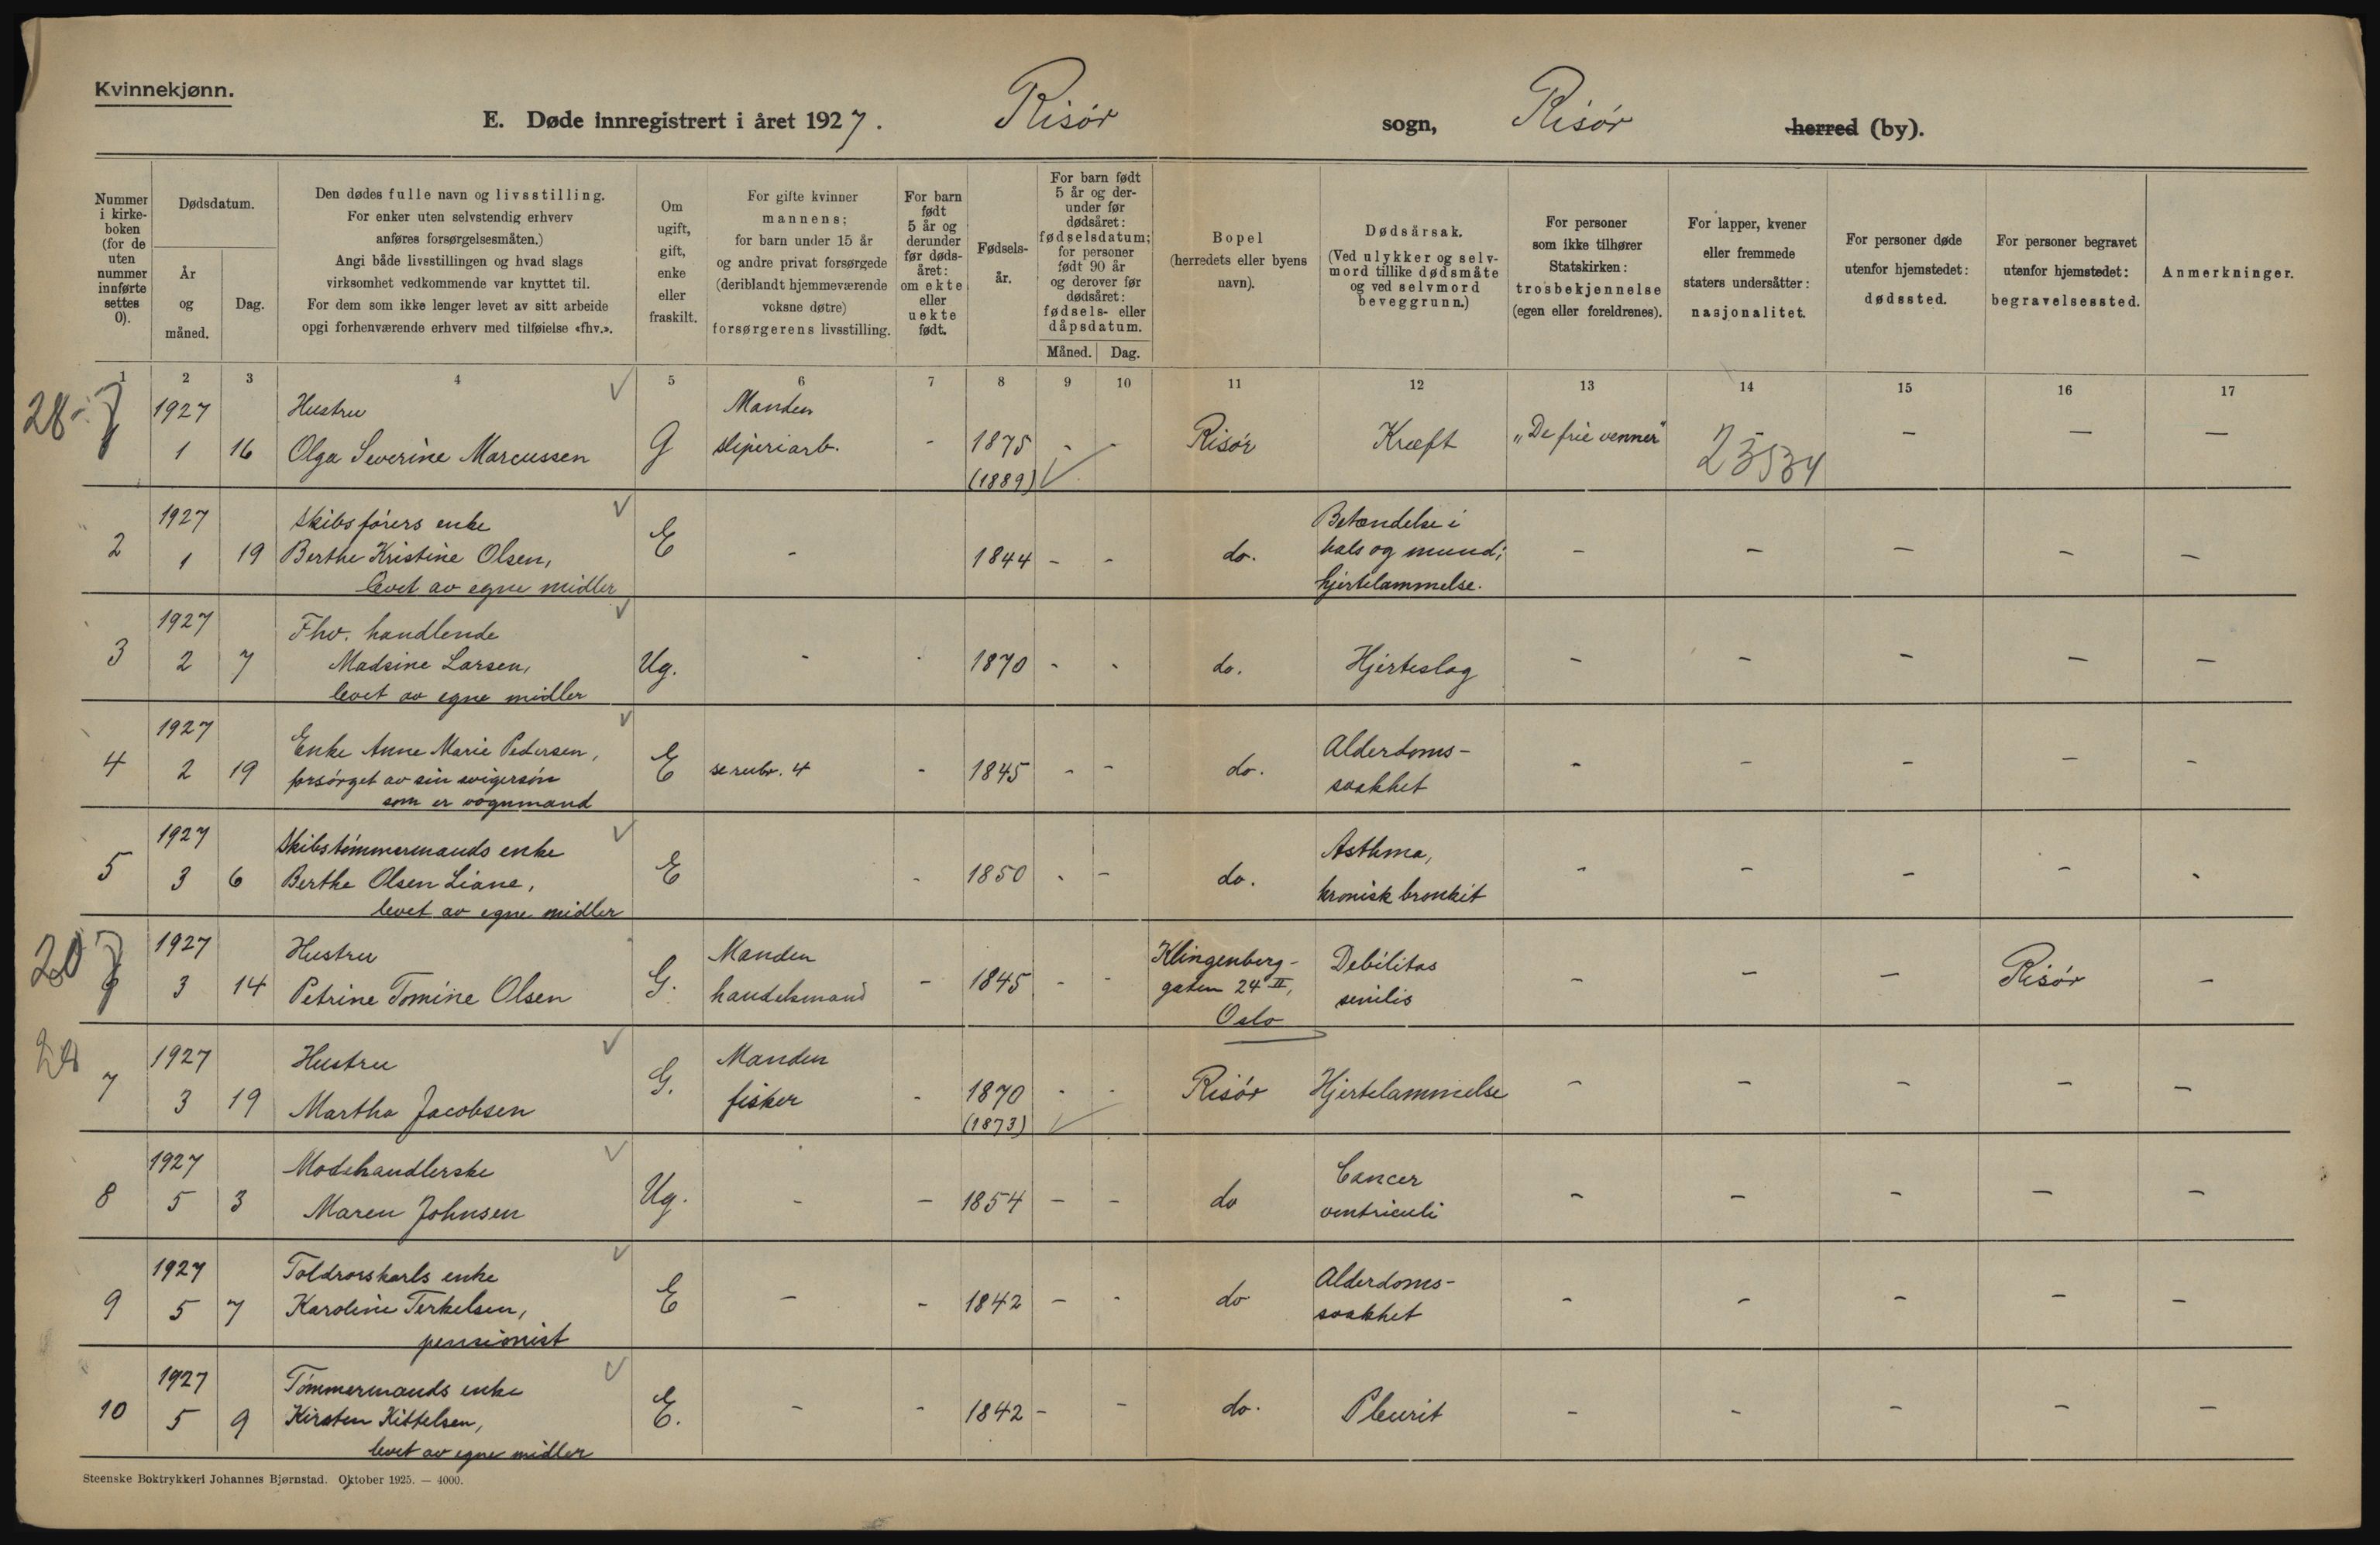 Kvinnekjønn.
E. Døde innregistrert i året 1927. Risør sogn, Risør herred (by).
Nummer i kirke-boken (for de uten nummer innførte settes 0).
Dødsdatum.
År og måned.
Dag.
Den dødes fulle navn og livsstilling.
For enker uten selvstendig erhverv
anføres forsørgelsesmåten.)
Angi både livsstillingen og hvad slags
virksomhet vedkommende var knyttet til.
For dem som ikke lenger levet av sitt arbeide
opgi forhenværende erhverv med tilføielse «fhv.».
Om ugift, gift, enke eller fraskilt.
For gifte kvinner
mannens;
for barn under 15 år
og andre privat forsørgede
(deriblandt hjemmeværende
voksne døtre)
forsørgerens livsstilling.
For barn født 5 år og derunder før døds-året: om ekte eller uekte født.
Fødsels-år.
For barn født 5 år og der-under før dødsåret: fødselsdatum; for personer født 90 år og derover før dødsåret: fødsels- eller dåpsdatum.
Måned. Dag.
Bopel
(herredets eller byens
navn).
Dødsårsak.
(Ved ulykker og selv-
mord tillike dødsmåte
og ved selvmord
beveggrunn.)
For personer
som ikke tilhører
Statskirken:
trosbekjennelse
(egen eller foreldrenes).
For lapper, kvener
eller fremmede
staters undersåtter:
nasjonalitet.
For personer døde
utenfor hjemstedet:
dødssted.
For personer begravet
utenfor hjemstedet:
begravelsessted.
Anmerkninger.
1 2 3 4 5 6 7 8 9 10 11 12 13 14 15 16 17
28-7
1927 Hustru Manden
1 1 16 Olga Severine Marcussen G sliperiarb. - 1875 - - Risør Kræft "De frie venner" - - - -
(1889) 23534
1927 Skibsførers enke Betændelse i
2 1 19 Berthe Kristine Olsen, E - 1844 - - do. hals og mund; - - - - -
levet av egne midler hjertelammelse.
1927 Fhv. handlende
3 2 7 Madsine Larsen, Ug. - - 1870 - - do. Hjerteslag - - - - -
levet av egne midler
1927 Enke Anne Marie Pedersen, Alderdoms-
4 2 19 forsørget av sin svigersøn E se rubr. 4 - 1845 - - do. svakhet - - - - -
som er vognmand
1927 Skibstømmermands enke Asthma,
5 3 6 Berthe Olsen Liane, E - 1850 - - do. kronisk bronkit - - - - -
levet av egne midler
20 7
1927 Hustru Manden Klingenberg- Debilitas
6 3 14 Petrine Tomine Olsen G. handelsmand - 1845 - - gaten 24 II, senilis - - - Risør -
Oslo
28
1927 Hustru Manden
7 3 19 Martha Jacobsen G. fisker - 1870 - - Risør Hjertelammelse - - - - -
(1873)
1927 Modehandlerske Cancer
8 5 3 Maren Johnsen Ug. - - 1854 - - do ventriculi - - - - -
1927 Toldrorskarls enke Alderdoms-
9 5 7 Karoline Terkelsen, E - - 1842 - - do svakhet - - - - -
pensionist
1927 Tømmermands enke
10 5 9 Kirsten Kittelsen, E. - - 1842 - - do. Pleurit - - - - -
levet av egne midler
Steenske Boktrykkeri Johannes Bjørnstad. Oktober 1925. — 4000.